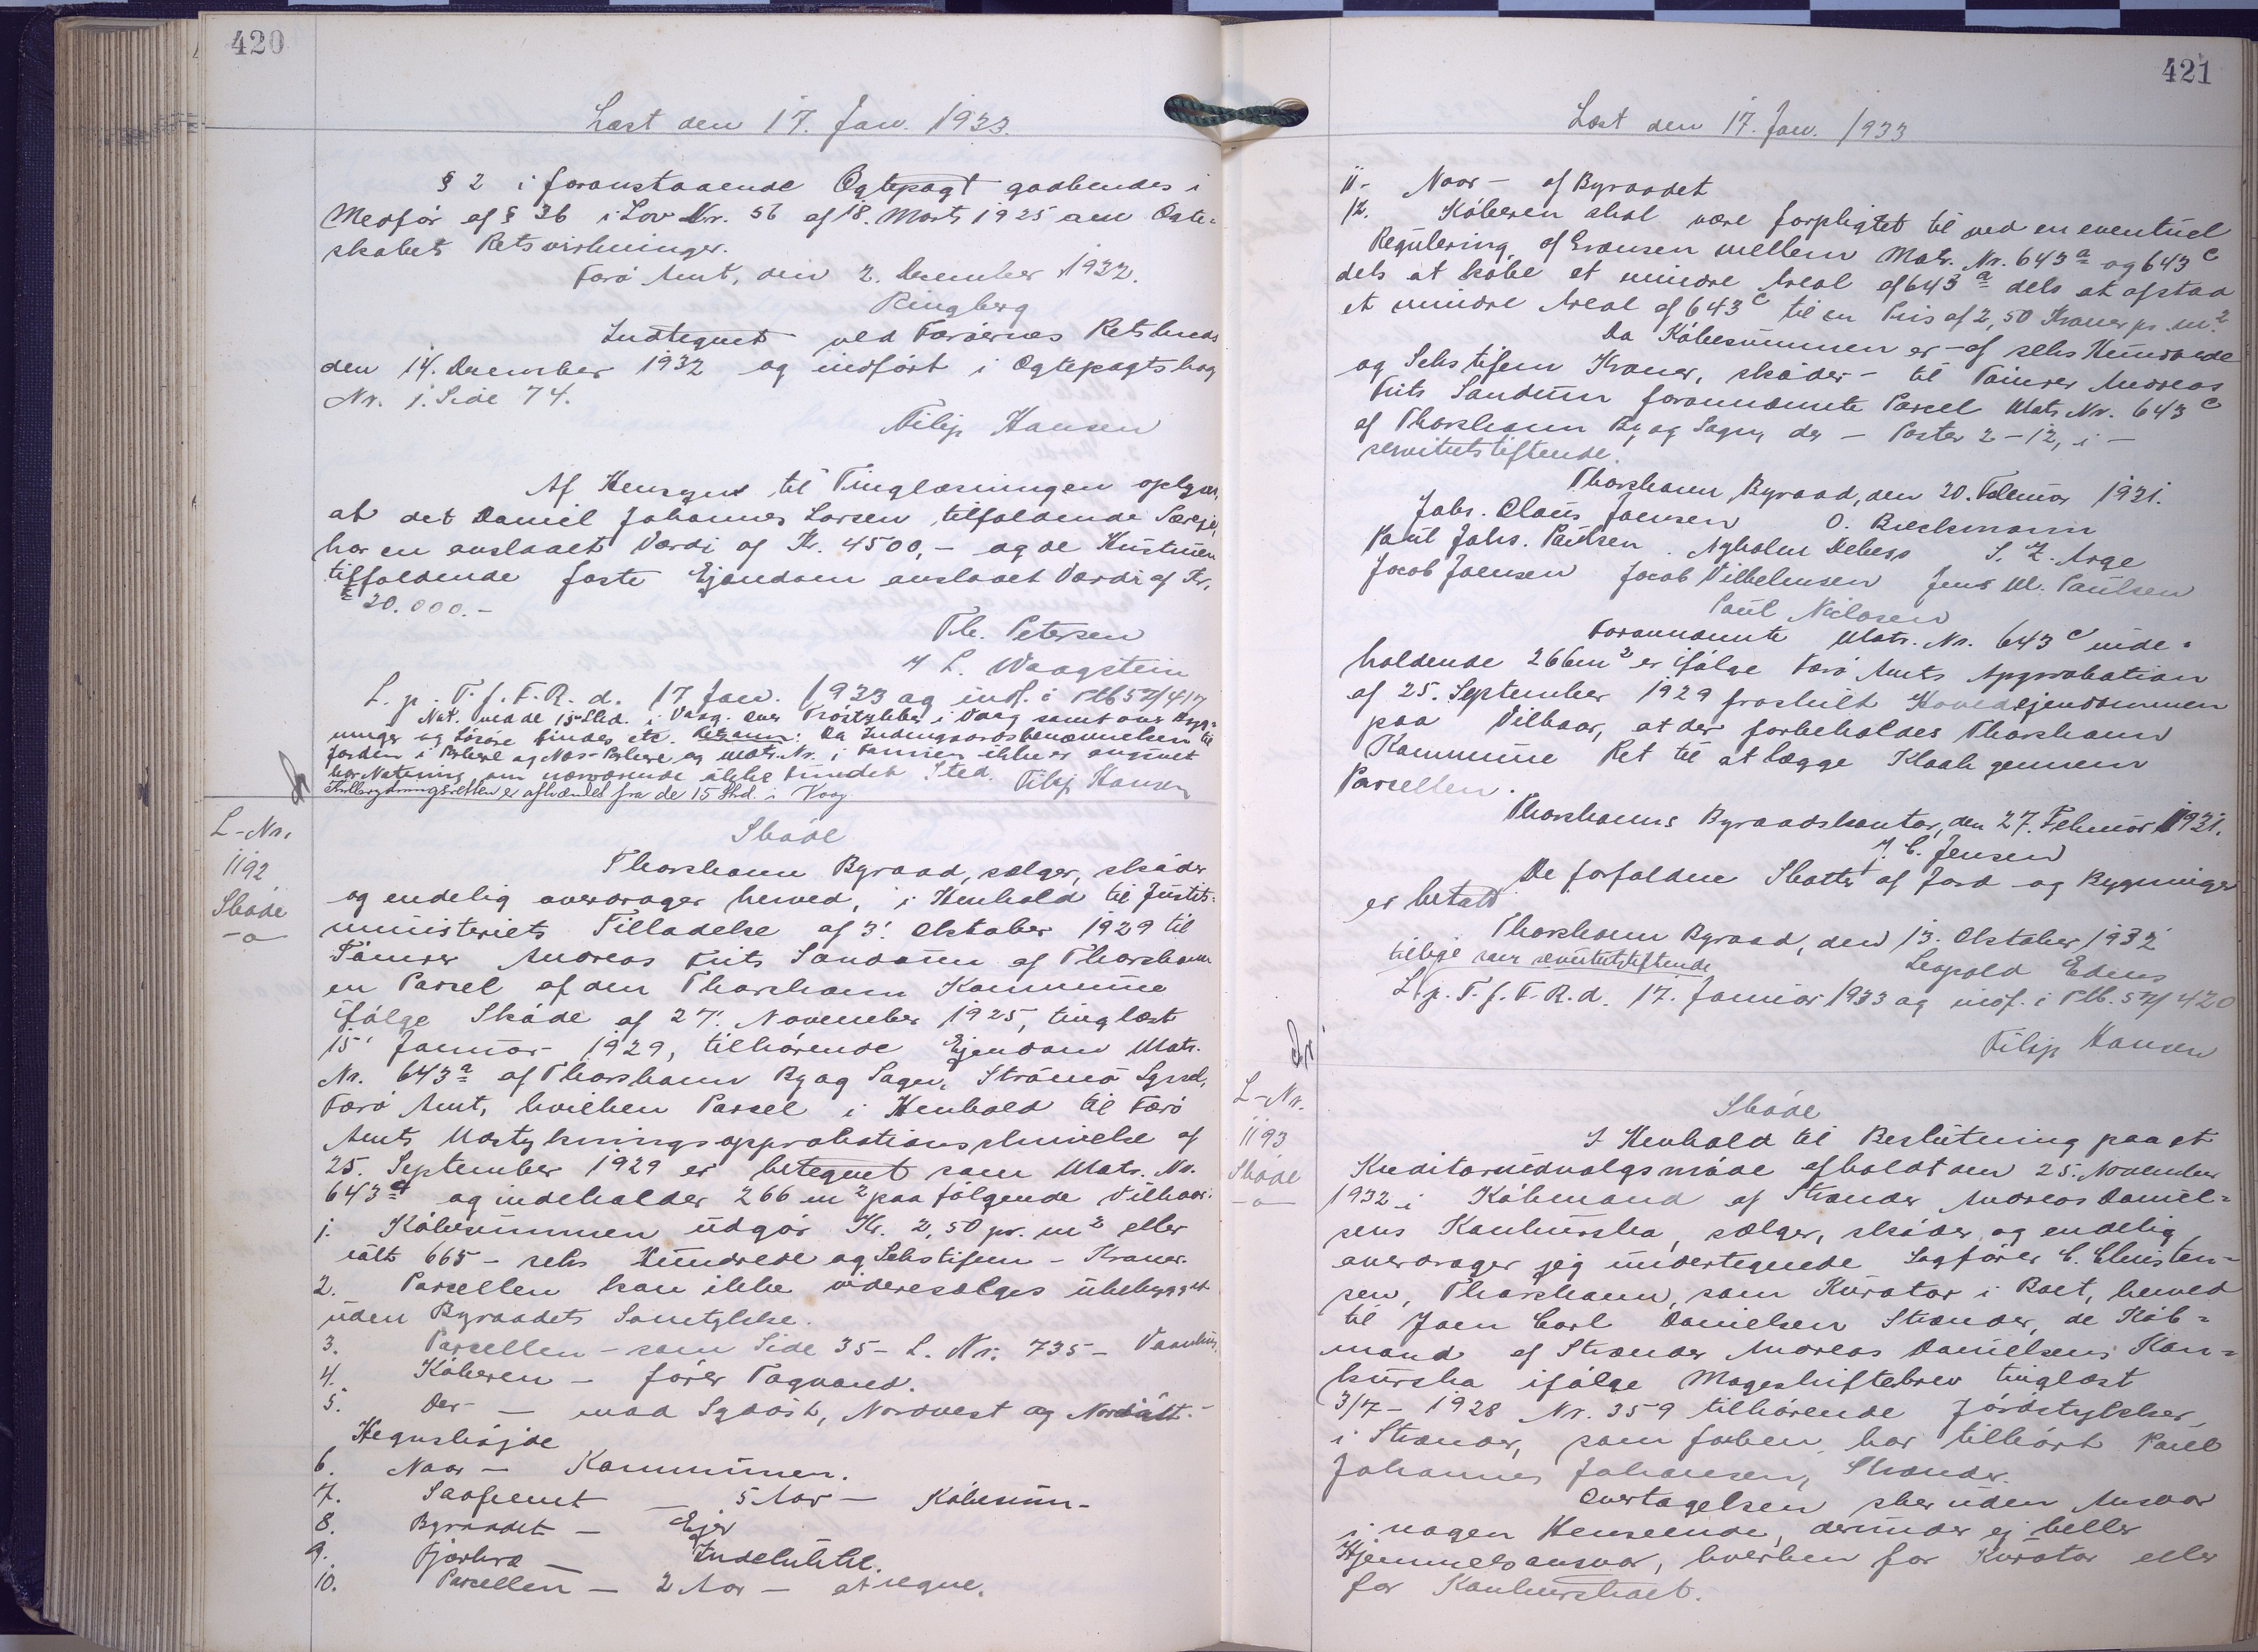 420
Læst den 17. Jan. 1933.
§ 2 i foranstaaende Ægtepagt godkendes i
Medfør af § 36 i Lov Nr. 56 af 18. Marts 1925 om Ægte-
skabets Retsvirkninger.
Færø Amt, den 2. December 1932.
Ringberg
Indtegnet ved Færøernes Retskreds
den 14. December 1932 og indført i Ægtepagtsbog
Nr. 1. Side 74.
Filip Hansen
Af Hensyn til Tinglæsningen oplyses,
at det Daniel Johannes Larsen tilfaldende Særeje,
har en anslaaet Værdi af Kr. 4500,- og de Hustruen
tilfaldende faste Ejendom anslaaet Værdi af Kr.
20.000.-
Th. Petersen
L. Waagstein
L. p. T. f. F. R. d. 17 Jan. 1933 og indf. i Ptb 5 417
Not. ved de 15 Skd. i Vaag. over Trøstykker i Vaag samt over Byg-
ninger og Løsøre findes etc. Retsanm: Da Indengaardsbenævnelsen til
Jorden i Porkere og Nes-Porkere og Matr. Nr. i Famien ikke er angivet
har Notering om nærværende ikke fundet Sted. Filip Hansen
er afhændet fra de 15 Skd. i Vaag.
L-Nr.
1192
Skøde
-o-
Skøde
Thorshavn Byraad, sælger, skøder
og endelig overdrager herved, i Henhold til Justits-
ministeriets Tilladelse af 3. Oktober 1929 til
Tømrer Andreas Frits Sandum af Thorshavn
en Parcel af den Thorshavn Kommune
ifølge Skøde af 27. November 1925, tinglæst
15' Januar 1929, tilhørende Ejendom Matr.
Nr. 643a af Thorshavn By og Sogn, Strømø Syssel,
Færø Amt, hvilken Parcel i Henhold til Færø
Amts Udstykningsapprobationsskrivelse af
25. September 1929 er betegnet som Matr. No.
643c og indeholder 266 m2 paa følgende Vilkaar:
1. Købesummen udgør Kr. 2,50 pr. m2 eller
ialt 665 - seks Hundrede og Sekstifem - Kroner.
2. Parcellen kan ikke videresælges ubebygget
uden Byraadets Samtykke.
3. Parcellen - som Side 35 - L. Nr. 735 - Vandhus
4. Køberen - fører Tagvand.
5. Der - mod Sydøst, Nordvest og Nordøst. -
Hegnshøjde
6. Naar - Kommunen.
7. Saafremt - 5 Aar - Købesum-
8. Byraadet - Ejer
9. Fjærkræ - Indelukke.
10. Parcellen - 2 Aar - at regne.
421
Læst den 17. Jan. 1933
11- Naar - af Byraadet
12. Køberen skal være forpligtet til ved en eventuel
Regulering af Grænsen mellem Matr. Nr. 643a og 643c
dels at købe et mindre Areal af 643a dels at afstaa
et mindre Areal af 643c til en Pris af 2,50 Kroner pr. m2.
Da Købesummen er - af seks Hundrede
og Sekstifem Kroner, skøder - til Tømrer Andreas
Frits Sandum forannævnte Parcel Matr. Nr. 643c
af Thorshavn By og Sogn, der - Poster 2-12, i -
servitutstiftende.
Thorshavn Byraad, den 20. Februar 1931.
Johs. Claus Joensen O. Bieckmann
Paul Johs. Paulsen. Nyholm Debess S. Z. Arge
Jacob Joensen Jacob Vilhelmsen Jens M. Paulsen
Paul Niclasen
Forannævnte Matr. Nr. 643c inde-
holdende 266 m2 er ifølge Færø Amts Approbation
af 25. September 1929 fraskilt Hovedejendommen
paa Vilkaar, at der forbeholdes Thorshavn
Kommune Ret til at lægge Kloak gennem
Parcellen.
Thorshavns Byraadskontor, den 27. Februar 1931.
J. C. Jensen
De forfaldne Skatter af Jord og Bygninger
er betalt
Thorshavn Byraad, den 13. Oktober 1932
tillige som servitutstiftende Leopold Edens
L. p. T. f. F. R. d. 17. Januar 1933 og indf. i Ptb. 5 420
Filip Hansen
L-Nr.
1193
Skøde
-o-
Skøde
I Henhold til Beslutning paa et
Kreditorudvalgsmøde afholdt den 25. November
1932 i Købmand af Strænder Andreas Daniel-
sens Konkursbo, sælger, skøder og endelig
overdrager jeg undertegnede Sagfører C. Christen-
sen, Thorshavn, som Kurator i Boet, herved
til Joen Carl Danielsen Strænder, de Køb-
mand af Strænder Andreas Danielsens Kon-
kursbo ifølge Mageskiftebrev tinglæst
3/7- 1928 Nr. 359 tilhørende Jordstykker
i Strænder, som forhen har tilhørt Poul
Johannes Johansen, Strænder.
Overtagelsen sker uden Ansvar
i nogen Henseende, derunder ej heller
Hjemmelsansvar, hverken for Kurator eller
for Konkursboet.